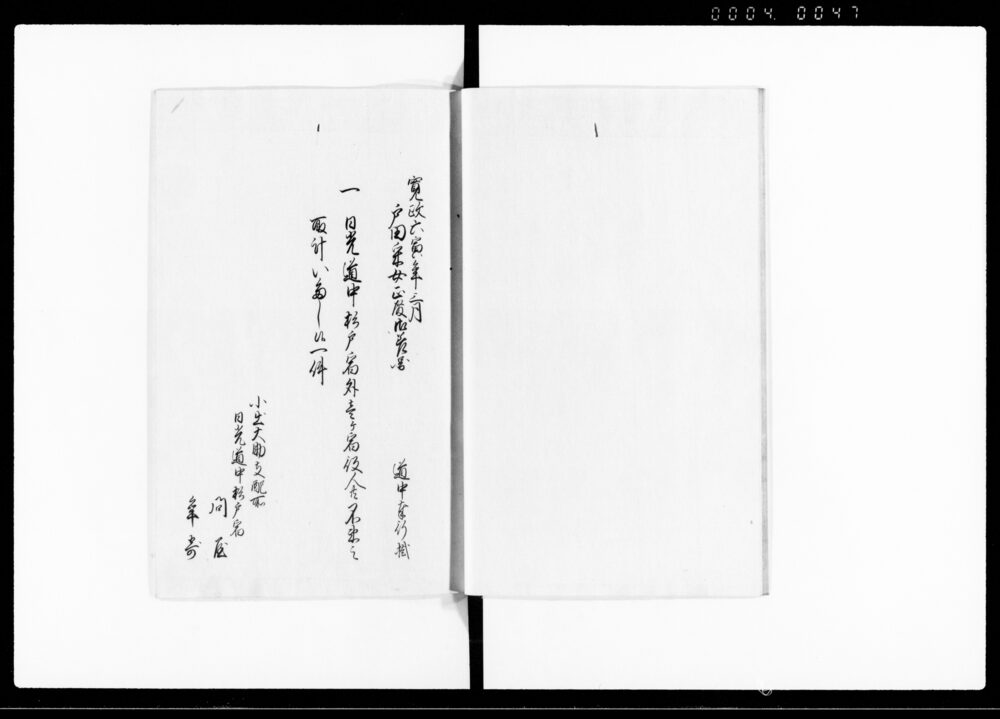 0004 0047
寛政六寅年三月
戸田采女正殿御差図
道中奉行掛
一 日光道中松戸宿外壱ケ宿役人共不束之
取計いたし候一件
小出大助支配所
日光道中松戸宿
問屋
年寄